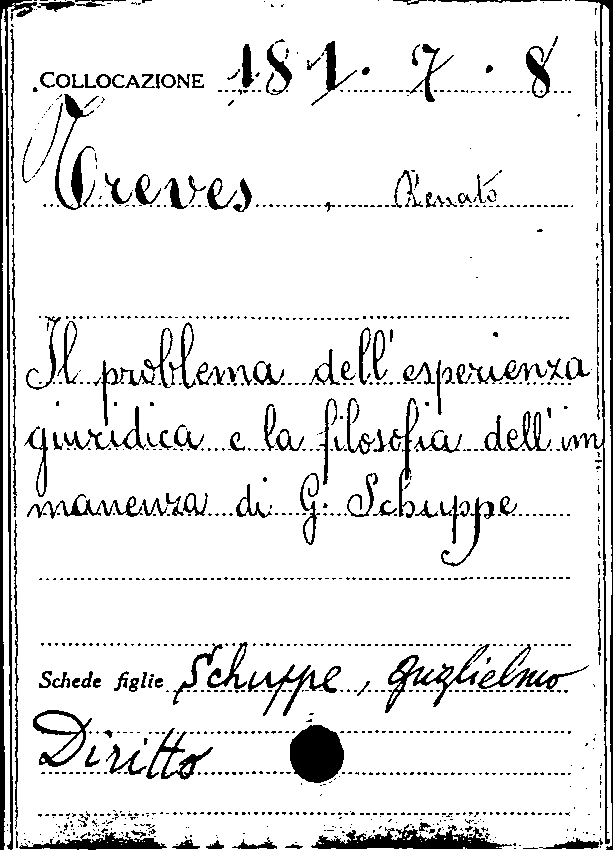 COLLOCAZIONE 181. 7. 8
Treves, Renato
Il problema dell'esperienza
giuridica e la filosofia dell'im
manenza di G. Schuppe
Schede figlie Schuppe, Guglielmo
Diritto